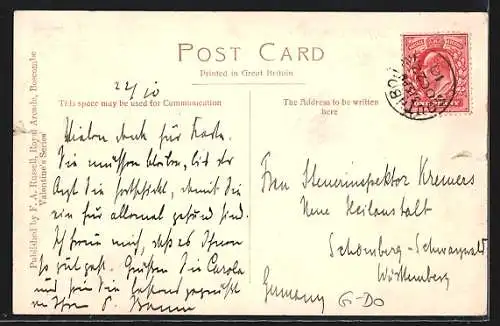 POST CARD
Printed in Great Britain
22/10
This space may be used for Communication
The Address to be written
here
Published by F. A. Russell, Royal Arcade, Boscombe
Valentine's Series
ONE PENNY
Vielen Dank für Karte.
Sie müssen bleiben, bis der
Arzt Sie fortschickt, damit Sie
ein für allemal gesund sind.
Ich freue mich, daß es Ihnen
so gut geht. Grüßen Sie Carola
und seien Sie bestens gegrüßt
Frau Steuerinspektor Kremers
Neue Heilanstalt
Schömberg - Schwarzwald
Württemberg
Germany